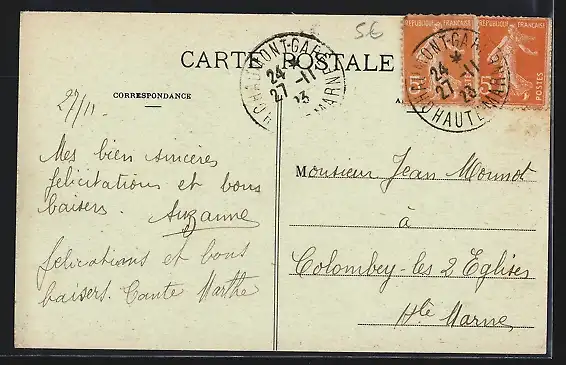 5€
CARTE POSTALE
RÉPUBLIQUE FRANÇAISE
RÉPUBLIQUE FRANÇAISE
POSTES
CHAUMONT-GARE
24 * 27 -11 23
HTE MARNE
CHAUMONT-GARE
24 * 27 -11 23
HAUTE MARNE
CORRESPONDANCE
27/11.
Mes bien sincères
félicitations et bons
baisers. Suzanne
félicitations et bons
baisers. Tante Marthe
Monsieur Jean Monnot
à
Colombey-les 2 Eglises
Hte Marne